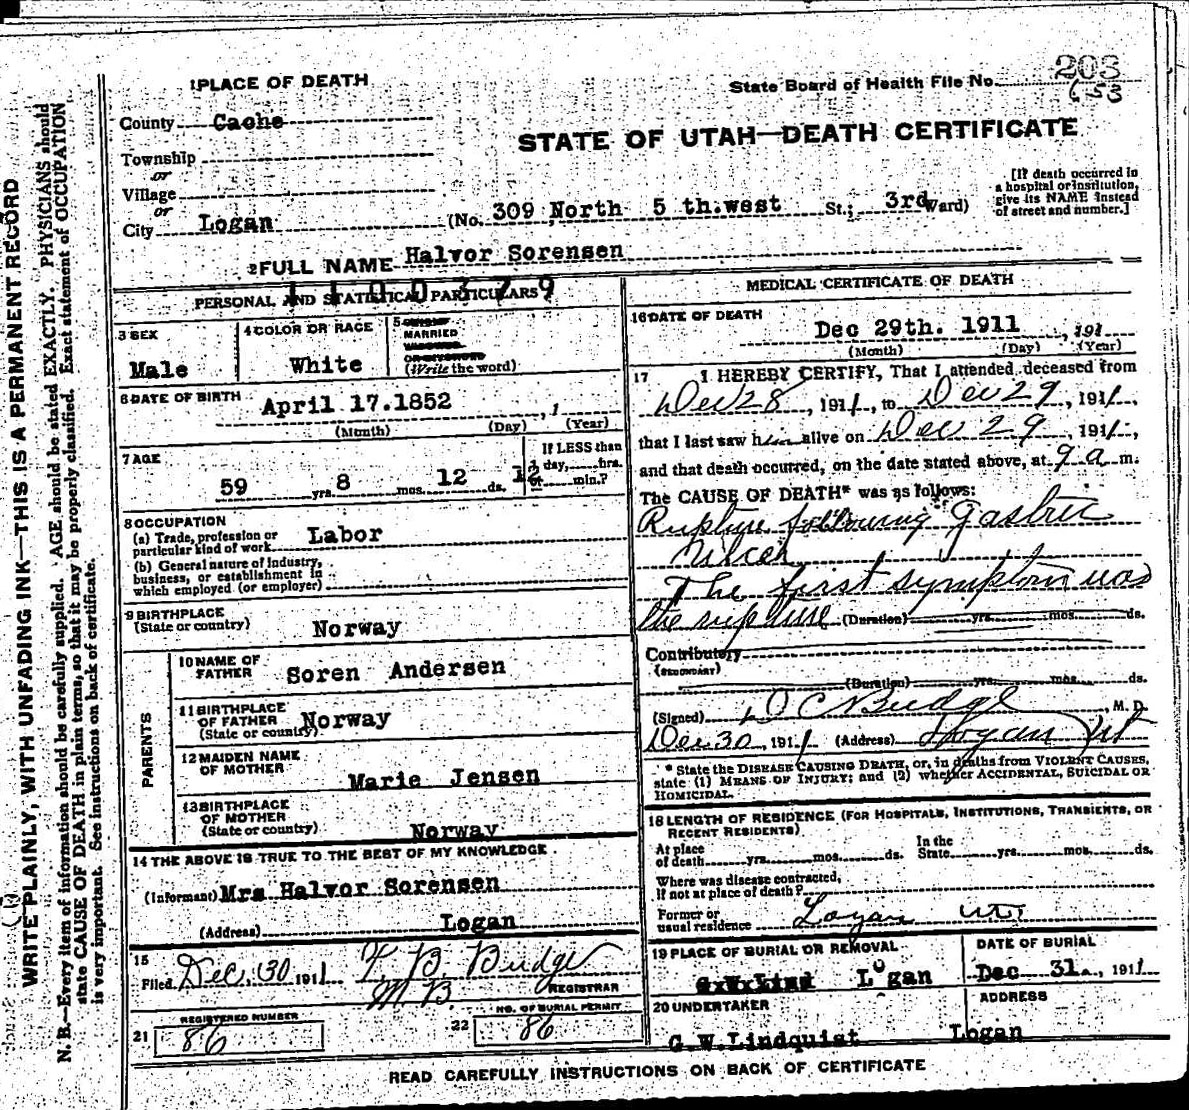 WRITE PLAINLY, WITH UNFADING INK—THIS IS A PERMANENT RECORD
N. B.—Every item of information should be carefully supplied. AGE should be stated EXACTLY. PHYSICIANS should
state CAUSE OF DEATH in plain terms, so that it may be properly classified. Exact statement of OCCUPATION
is very important. See instructions on back of certificate.
1 PLACE OF DEATH
State Board of Health File No. 203
653
County Cache
STATE OF UTAH—DEATH CERTIFICATE
Township
or
Village
or
City Logan (No. 309 North 5 th.west St.; 3rd Ward)
[If death occurred in
a hospital or institution,
give its NAME instead
of street and number.]
2 FULL NAME Halvor Sorensen
PERSONAL AND STATISTICAL PARTICULARS
3 SEX
Male
4 COLOR OR RACE
White
5
MARRIED
(Write the word)
6 DATE OF BIRTH
April 17.1852 , 1
(Month) (Day) (Year)
7 AGE
59 yrs. 8 mos. 12 ds.
If LESS than
day, hrs.
min.?
8 OCCUPATION
(a) Trade, profession or
particular kind of work Labor
(b) General nature of industry,
business, or establishment in
which employed (or employer)
9 BIRTHPLACE
(State or country) Norway
PARENTS
10 NAME OF
FATHER Soren Andersen
11 BIRTHPLACE
OF FATHER
(State or country) Norway
12 MAIDEN NAME
OF MOTHER Marie Jensen
13 BIRTHPLACE
OF MOTHER
(State or country) Norway
14 THE ABOVE IS TRUE TO THE BEST OF MY KNOWLEDGE
(Informant) Mrs Halvor Sorensen
(Address) Logan
15
Filed Dec. 30 1911 T. B. Budge
REGISTRAR
21 REGISTERED NUMBER
86
22 NO. OF BURIAL PERMIT
86
MEDICAL CERTIFICATE OF DEATH
16 DATE OF DEATH
Dec 29th. 1911 , 191
(Month) (Day) (Year)
17 I HEREBY CERTIFY, That I attended deceased from
Dec 28, 1911, to Dec 29, 1911,
that I last saw him alive on Dec 29, 1911,
and that death occurred, on the date stated above, at 9 a m.
The CAUSE OF DEATH* was as follows:
Rupture following gastric
Ulcer
The first symptom was
the rupture (Duration) yrs. mos. ds.
Contributory
(SECONDARY)
(Duration) yrs. mos. ds.
(Signed) D C Budge, M. D.
Dec 30, 1911 (Address) Logan Ut
* State the DISEASE CAUSING DEATH, or, in deaths from VIOLENT CAUSES,
state (1) MEANS OF INJURY; and (2) whether ACCIDENTAL, SUICIDAL OR
HOMICIDAL.
18 LENGTH OF RESIDENCE (FOR HOSPITALS, INSTITUTIONS, TRANSIENTS, OR
RECENT RESIDENTS)
At place
of death yrs. mos. ds.
In the
State yrs. mos. ds.
Where was disease contracted,
If not at place of death?
Former or
usual residence Logan Ut
19 PLACE OF BURIAL OR REMOVAL
Logan
DATE OF BURIAL
Dec 31., 1911
20 UNDERTAKER
G.W.Lindquist
ADDRESS
Logan
READ CAREFULLY INSTRUCTIONS ON BACK OF CERTIFICATE